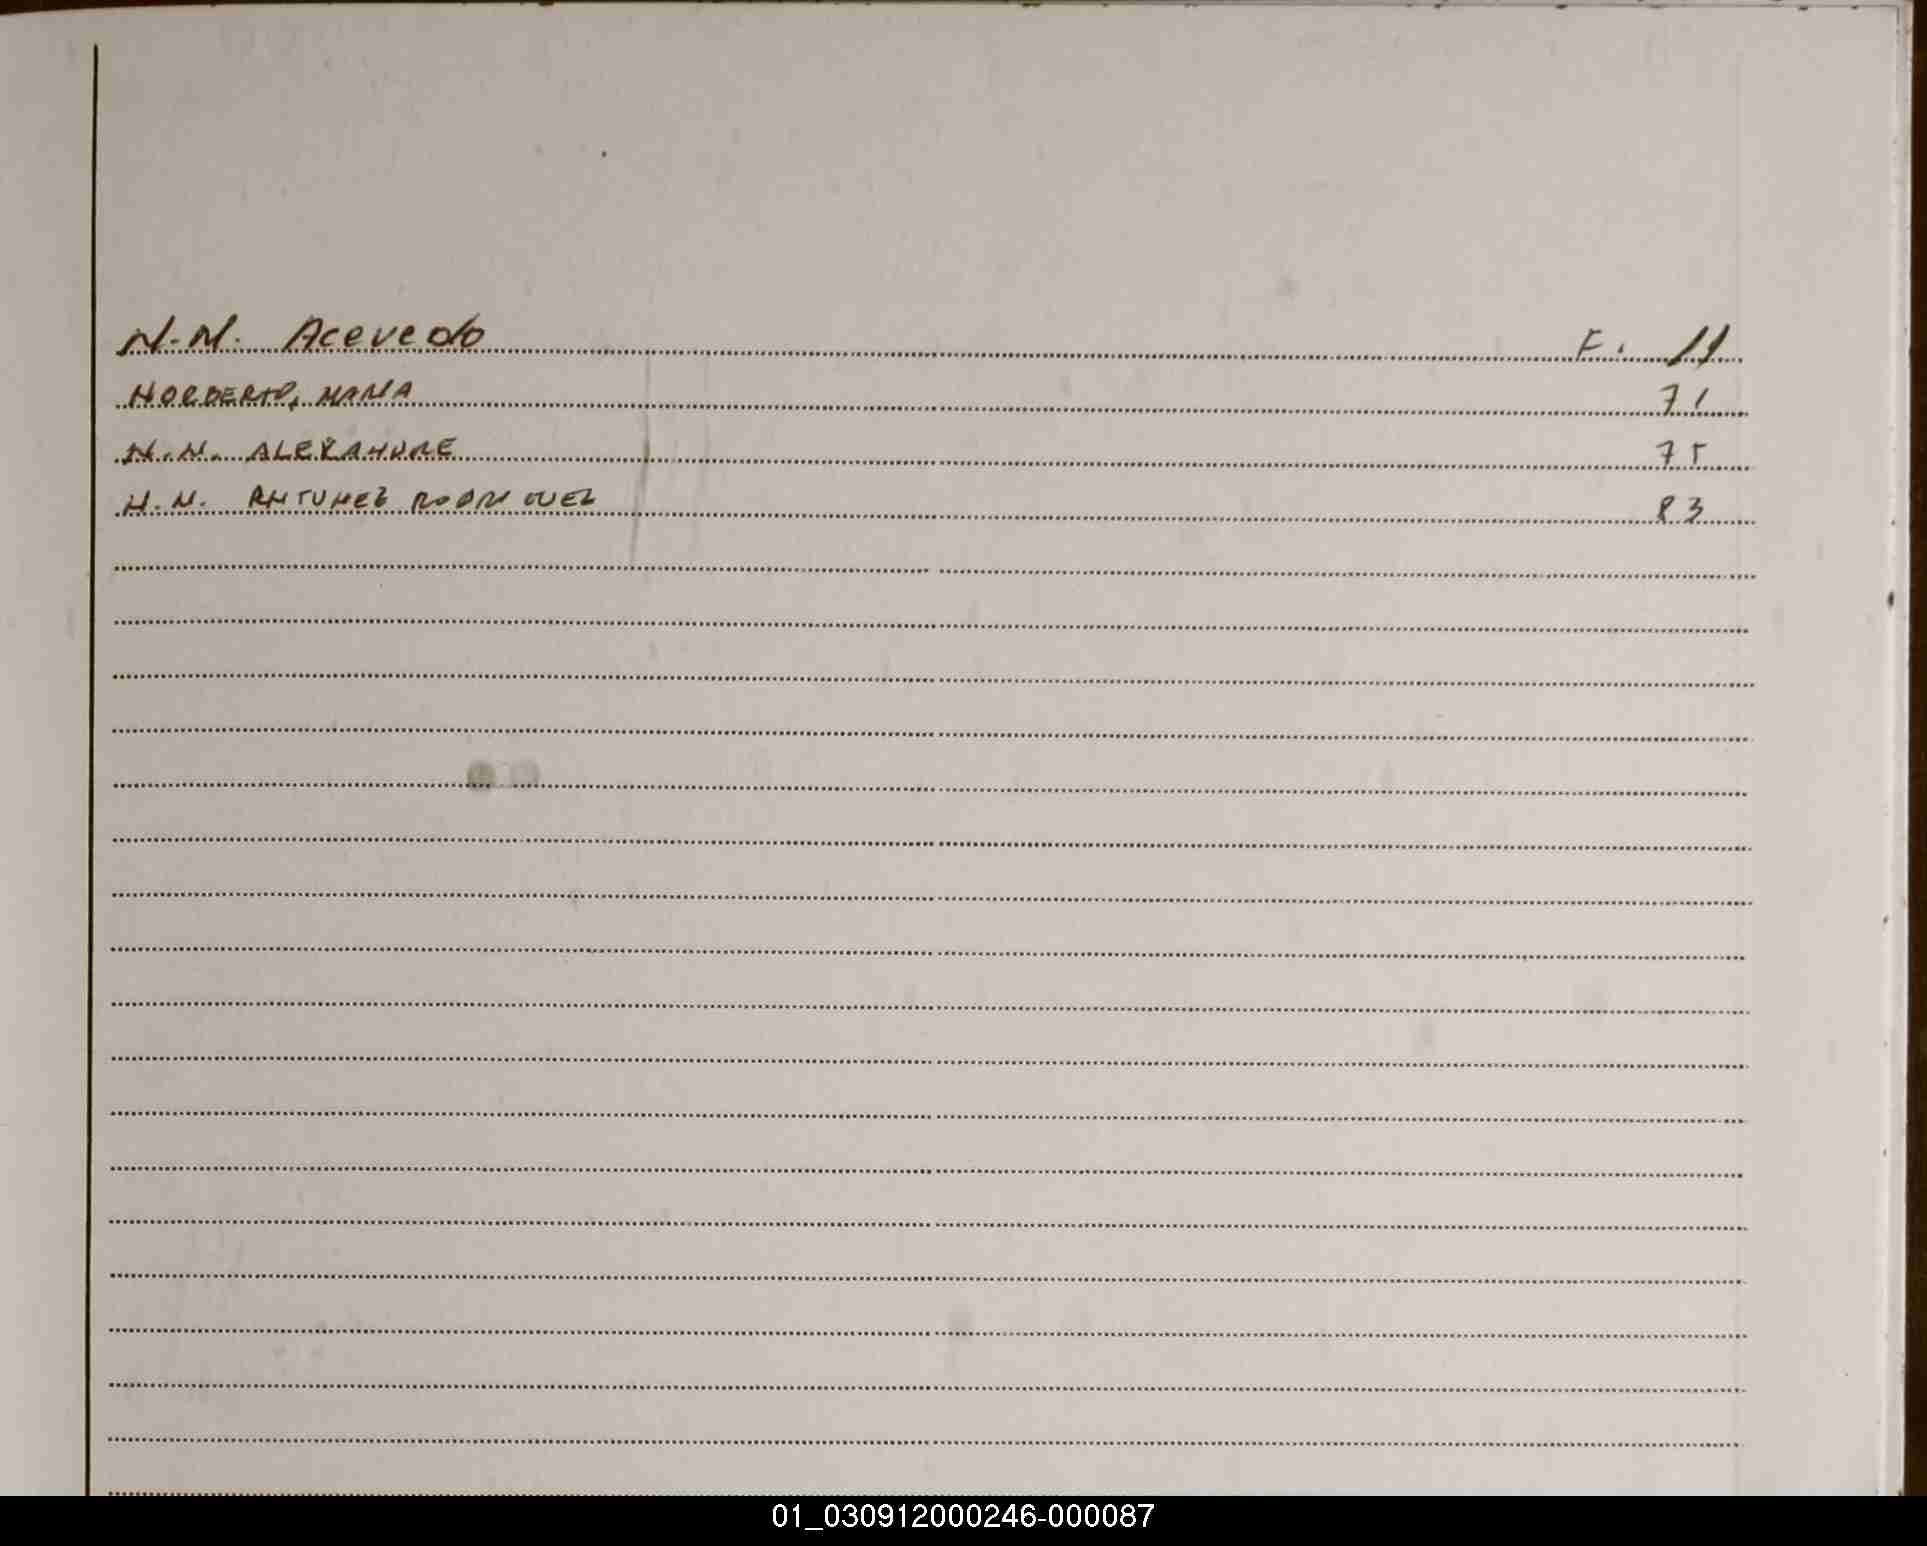 N.N. Acevedo F. 11
NORBERTO, MARIA 71
N.N. ALEXANDRE 75
N.N. ANTUNEZ RODRIGUEZ 83
01_030912000246-000087